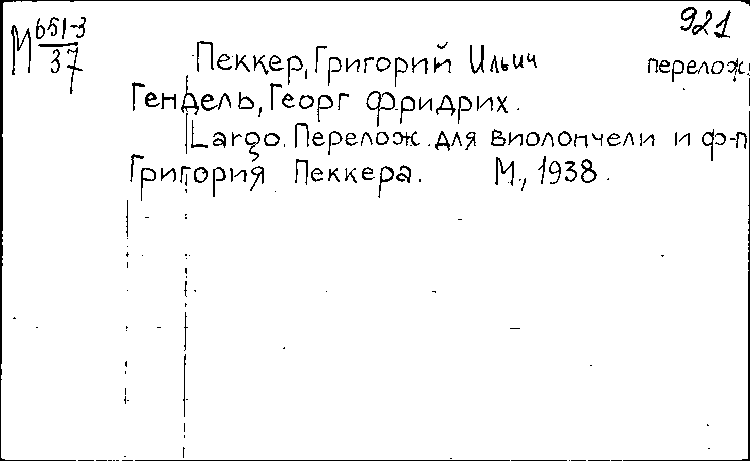 М 651-3
37
921
Пеккер, Григорий Ильич перелож.
Гендель, Георг Фридрих.
Largo. Перелож. для виолончели и ф-п
Григория Пеккера. М., 1938.